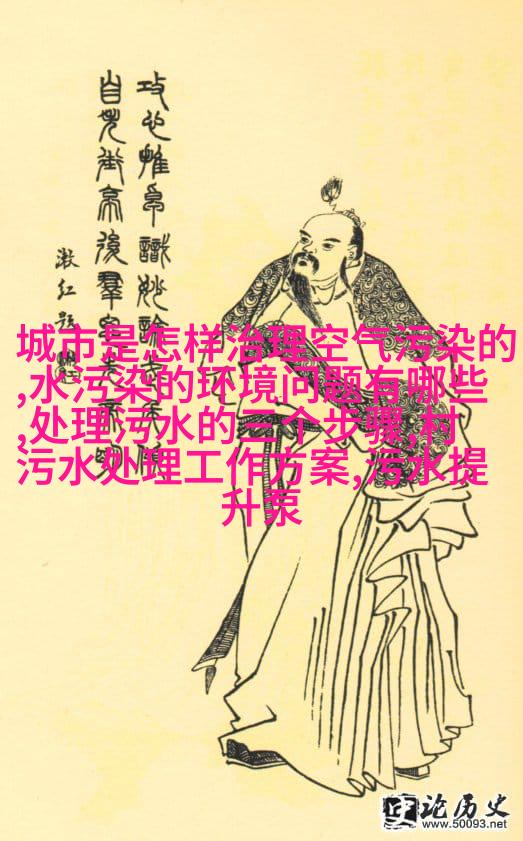 攻心帷帛識妙論
自先街亭後群
淑红题
城市是怎样治理空气污染的
,水污染的环境问题有哪些
,处理污水的三个步骤,村
污水处理工作方案,污水提
升泵
论历史
www.50093.net